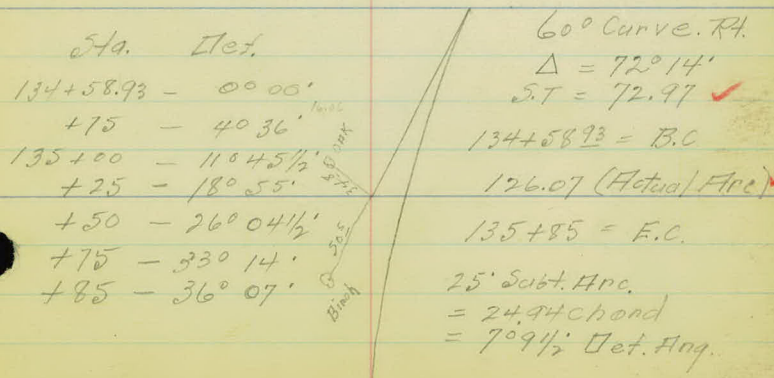 Sta. Def.
134+58.93 - 0° 00'
+75 - 4° 36'
135+00 - 11° 45 1/2'
+25 - 18° 55'
+50 - 26° 04 1/2'
+75 - 33° 14'
+85 - 36° 07'
Oak
50.5
Birch
60° Curve. Rt.
Δ = 72° 14'
S.T = 72.97 ✓
134+58 93 = B.C
126.07 (Actual Arc)
135+85 = E.C.
25' Subt. Arc.
= 24.94 chord
= 7° 9 1/2' Def. Ang.